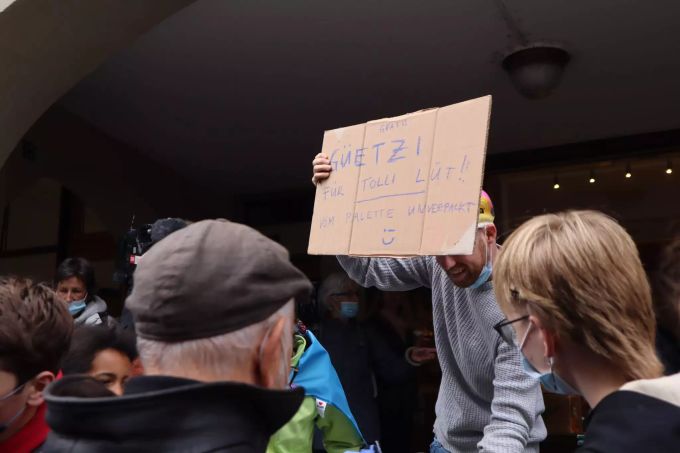 GRATIS
GÜETZI
FÜR TOLLI LÜT!!
VOM PALETTE UNVERPACKT
:)